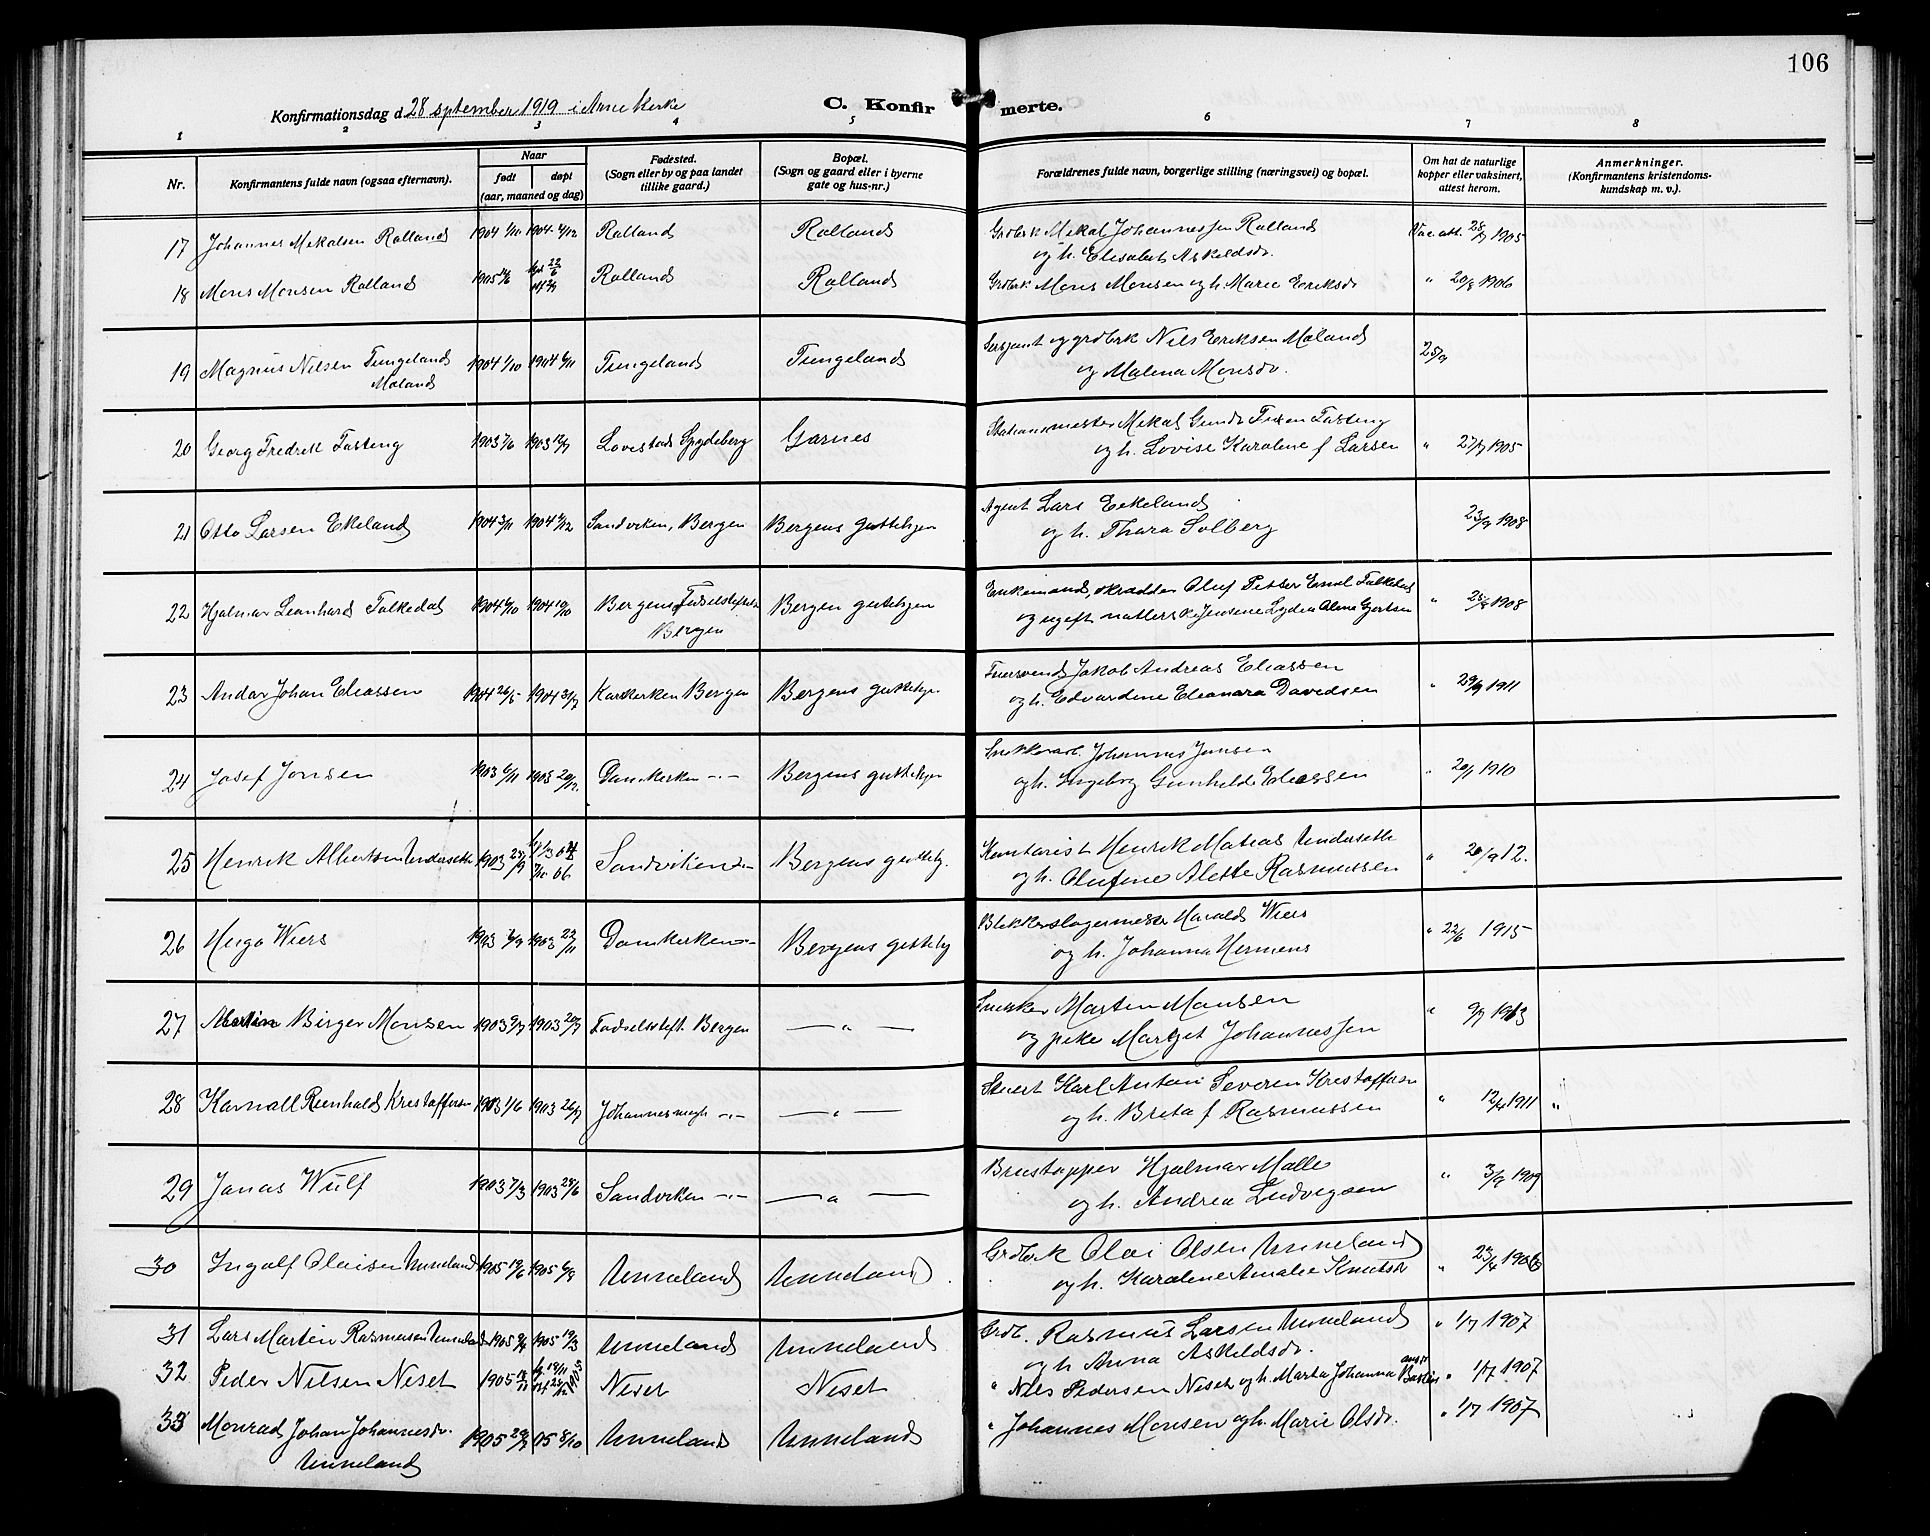 106
Konfirmationsdag d. 28 sptember 1919 i Arne kirke
C. Konfirmerte.
1 2 3 4 5 6 7 8
Nr.
Konfirmantens fulde navn (ogsaa efternavn).
Naar
født døpt
(aar, maaned og dag)
Fødested.
(Sogn eller by og paa landet tillike gaard.)
Bopæl.
(Sogn og gaard eller i byerne gate og hus-nr.)
Forældrenes fulde navn, borgerlige stilling (næringsvei) og bopæl.
Om hat de naturlige kopper eller vaksinert, attest herom.
Anmerkninger.
(Konfirmantens kristendomskundskap m. v.).
17 Johannes Mikalsen Rolland 1904 1904 4/12 Rolland Rolland Grdbrk Mikal Johannessen Rolland
og h. Elisabet Askildsdr. Vac. att. 1905
18 Mons Monsen Rolland 1905 Rolland Rolland Grdbrk Mons Monsen og h. Marie Eriksdr " 20/8 1906
19 Magnus Nilsen Tungeland
Moland 1904 1/10 1904 6/11 Tungeland Tungeland Sersjant og grdbrk Nils Eriksen Moland
og Malena Monsdr. 25/9
20 Georg Fredrik Fasting 1903 7/6 1903 Lovestad Spydeberg Garnes Stationsmester Mikal Fasting
og h. Lovise Karoline f Larsen " 1905
21 Otto Larsen Ekeland 1904 3/11 1904 Sandviken, Bergen Bergens guttehjem Agent Lars Eekeland
og h. Thora Solberg 23/9 1908
22 Hjalmar Leonhard Falkedal 1904 1904 Bergens Fødselstiftelse
Bergen Bergen guttehjem Enkemand, skrædder Oluf Petter Emil Falkedal
og ugift Jensine Lydia Oline Gjertsen " 1908
23 Andor Johan Eliassen 1904 26/5 1904 31/7 Korskirken Bergen Bergens guttehjem Jakob Andreas Eliassen
og h. Edvardine Eleonora Davidsen " 29/9 1911
24 Josef Jonsen 1903 6/11 1903 20/12 Domkirken -"- Bergens guttehjem Snekkerarb. Johannes Jonsen
og h. Ingeborg Gunhilde Eliassen " 20/1 1910
25 Henrik Albertsen Undersetth 1903 Sandviken -"- Bergens guttehj. Kontorist Henrik Matias Undersetth
og h. Olufine Alette Rasmussen " 20/9 12.
26 Hugo Wiers 1903 1903 22/11 Domkirken -"- Bergens guttehj Blikkenslagermester Harald Wiers
og h. Johanna Hermens " 22/6 1915
27 Martin Birger Monsen 1903 1903 Fødselsstift. Bergen — " — Snekker Martin Monsen
og pike Marget Johannessen " 9/9 1913
28 Reinhald Kristoffersen 1903 1/6 1903 26/7 Johannesmgh -"- — " — Stuert Karl Anton Severin Kristoffersen
og h. Brita f Rasmussen " 12/4 1911 "
29 Jonas Wulf 1903 7/3 1903 Sandviken -"- — " — Brustapper Hjalmar Malle
og h. Andrea Ludvigsen " 3/9 1909
30 Ingolf Olaisen Unneland 1905 1905 6/8 Unneland Unneland Grdbrk Olai Olsen Unneland
og h. Karoline Amalie Knutsdr " 23/4 1906
31 Lars Martin Rasmusen Unneland 1905 1905 19/3 Unneland Unneland Grdb. Rasmus Larsen Unneland
og h Anna Askildsdr. " 1/7 1907
32 Peder Nilsen Neset 1905 Neset Neset " Nils Pedersen Neset og h. Marta Johanna " 1/7 1907
33 Monrad Johan Johannesdr.
Unneland 1905 05 8/10 Unneland Unneland " Johannes Monsen og h. Marie Olsdr. " 1/7 1907